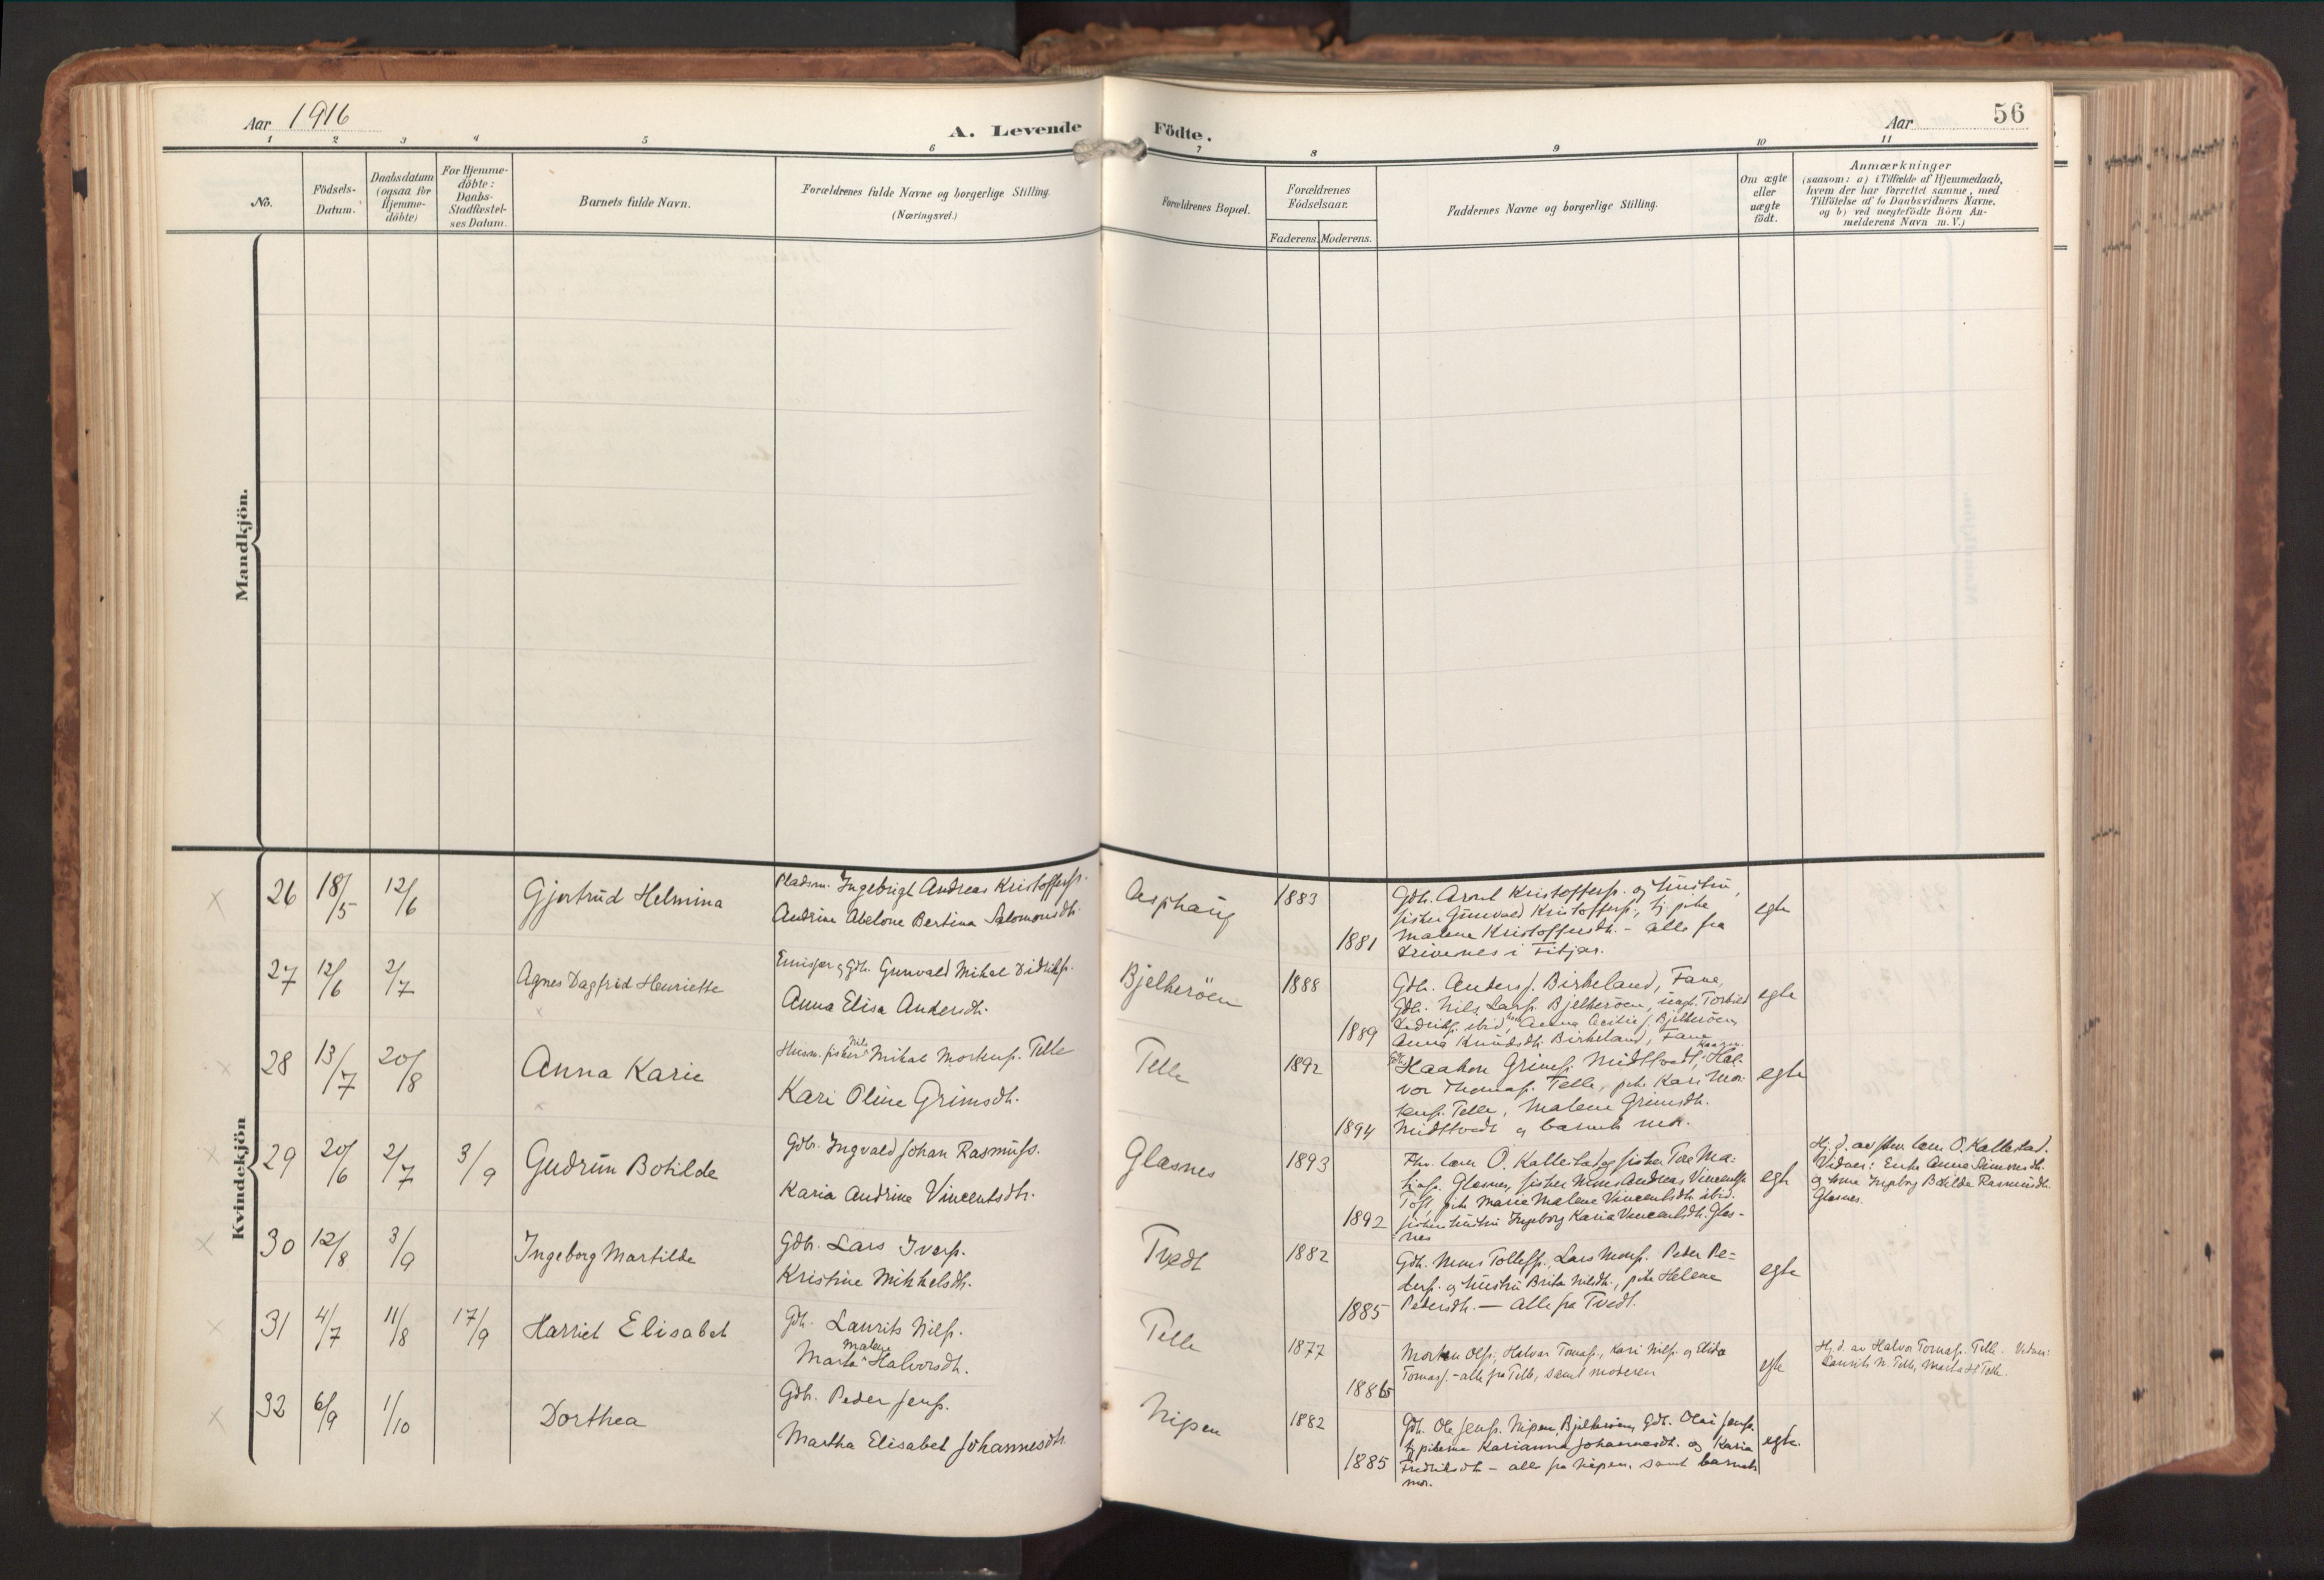 Aar 1916
A. Levende Födte.
Aar
56
1 2 3 4 5 6 7 8 9 10 11
No.
Födsels-
Datum.
Daabsdatum
(ogsaa for
Hjemme-
döbte)
For Hjemme-
döbte:
Daabs-
Stadfæstel-
ses Datum.
Barnets fulde Navn.
Forældrenes fulde Navne og borgerlige Stilling.
(Næringsvei.)
Forældrenes Bopæl.
Forældrenes
Födselsaar.
Faderens. Moderens.
Faddernes Navne og borgerlige Stilling.
Om ægte
eller
uægte
födt.
Anmærkninger
(saasom: a) i Tilfælde af Hjemmedaab,
hvem der har forrettet samme, med
Tilföielse af to Daabsvidners Navne.
og b) ved uægtefödte Börn An-
melderens Navn m. V.)
Mandkjön.
Kvindekjön
26 18/5 12/6 Gjertrud Helmina
Pladsm. Ingebrigt Andreas Kristoffersp.
Andrine Abelone Bertina Salomonsdtr.
Asphaug 1883 1881
Gdb. Arout Kristoffersp. og hustru,
fisker Gunvald Kristoffersp., tj. pike
Malene Kristoffersdtr. - alle fra
i Fitjar.
egte
27 12/6 2/7 Agnes Dagfrid Henriette
Emisjær og Gdb. Gunvald Mikal Didriksp.
Anna Elisa Andersdtr.
Bjelkeröen 1888 1889
Gdb. Andersp. Birkeland, Fane,
Gdb. Nils Larsp. Bjelkeröen, ungk. Torbiö
Didriksp. ibid, Anna Cecilie Bjelkeröen,
Anna Knudsdtr. Birkeland, Fane
egte
28 13/7 20/8 Anna Karie
Husm. fisker Nils Mikal Mortensp. Telle
Kari Oline Grimsdtr.
Telle 1892 1894
Haakon Grimsp. Midttvedt, Hal-
vor Thomasp. Telle, pike Kari Mor-
tensp. Telle, Malene Grimsdtr.
Midttvedt og barnets mor.
egte
29 20/6 2/7 3/9 Gudrun Botilde
Gdb. Ingvald Johan Rasmusp.
Karia Andrine Vincentsdtr.
Glasnes 1893 1892
Fhv. lærer O. Kallestad og fisker Tore Ma-
tiasp. Glasnes, fisker Mons Andreas Vincentsp.
Toft, pike Marie Malene Vincentsdtr. ibid.
fisker hustru Ingeborg Karia Vincentsdtr. Glas-
nes
egte
Hj. d. av fhv. lærer O. Kallestad.
Vidner: Enke Anna Simonsdtr.
og kone Ingeborg Botilda Rasmusdtr.
Glasnes.
30 12/8 3/9 Ingeborg Martilde
Gdb. Lars Iversp.
Kristine Mikkelsdtr.
Tvedt 1882 1885
Gdb. Mons Tollefsp., Lars Monsp. Peder Pe-
dersp. og hustru Brita Nilsdtr., pike Helene
Pedersdtr. — Alle fra Tvedt.
egte
31 4/7 11/8 17/9 Harriet Elisabet
Gdb. Laurits Nilsp.
Marta Malene Halvorsdtr.
Telle 1877 1886
Morten Olsp., Halvor Tomasp., Kari Nilsp. og Elida
Tomasp. - alle fra Telle, samt moderen
egte
Hj. d. av Halvor Tomasp. Telle. Vidner:
Laurits N. Telle, Marta H. Telle.
32 6/9 1/10 Dorthea
Gdb. Peder Jensp.
Martha Elisabet Johannesdtr.
Nipen 1882 1885
Gdb. Ole Jensp. Nipen, Bjelkeröen, Gdb. Olai Jensp.
tj. pikerne Karianna Johannesdtr. og Karia
Fredriksdtr. - alle fra Nipen, samt barnets
mor.
egte.